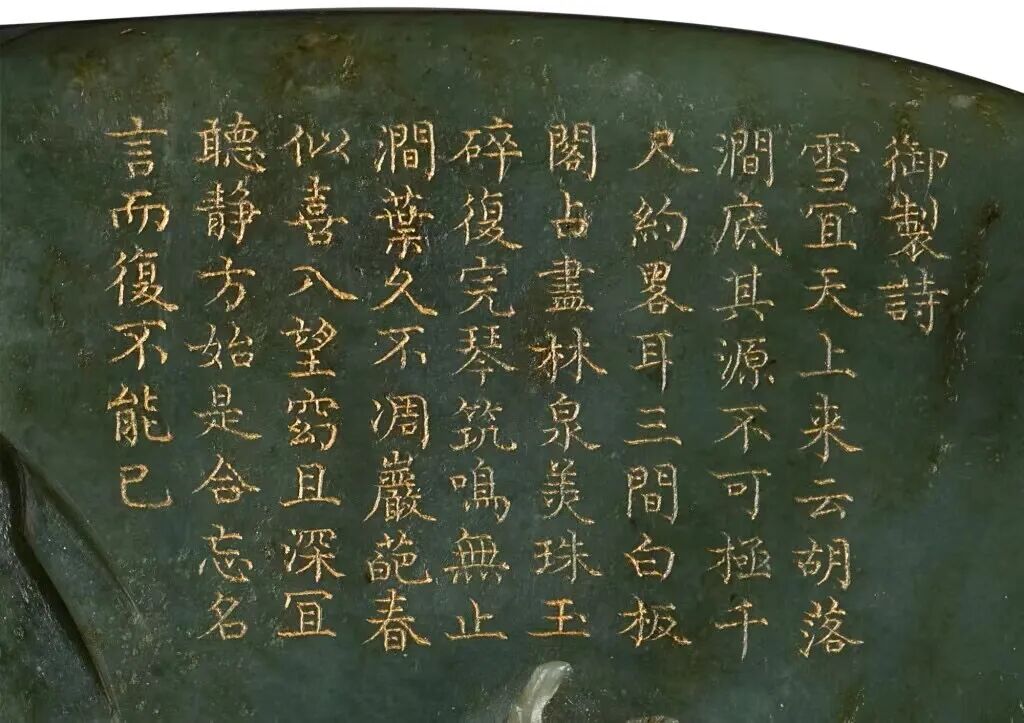 御製詩
雪宜天上来云胡落
澗底其源不可極千
尺約畧耳三間白板
閣占盡林泉美珠玉
碎復完琴筑鳴無止
澗葉久不凋巖葩春
似喜入望窈且深宜
聽静方始是合忘名
言而復不能已